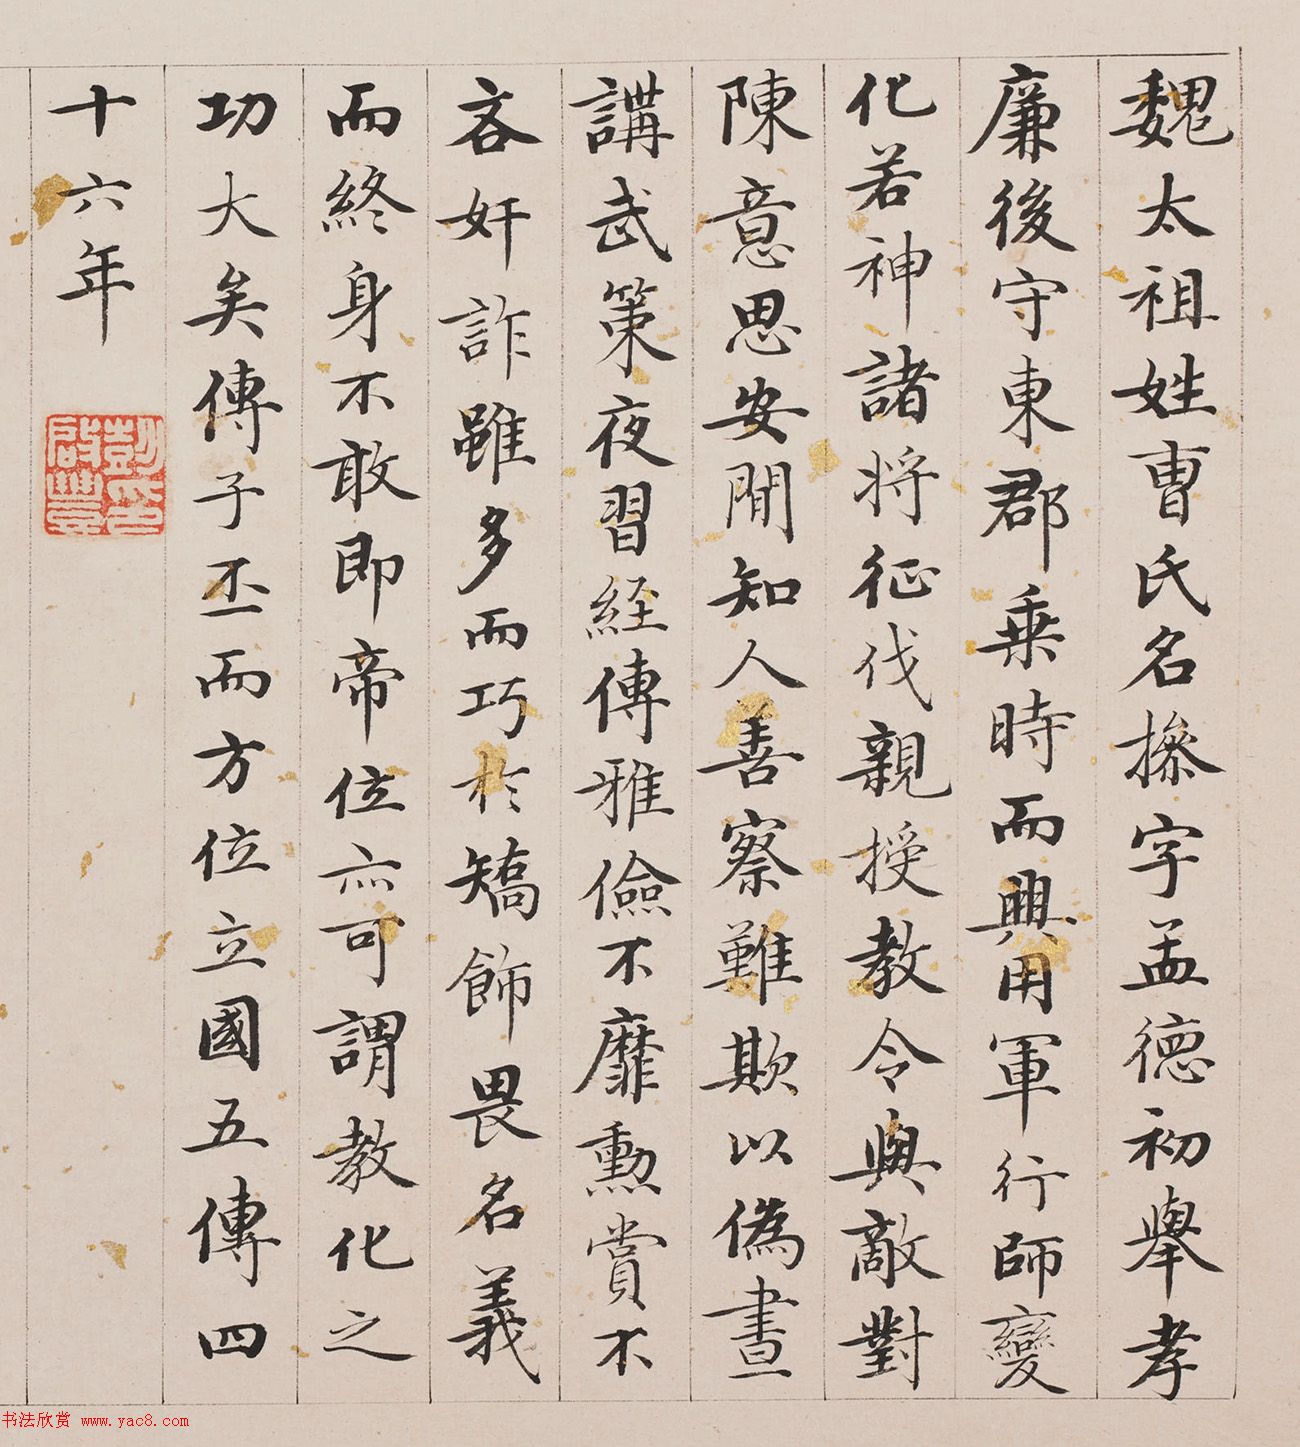 魏太祖姓曹氏名操字孟德初舉孝
廉後守東郡乗時而興用軍行師變
化若神諸将征伐親授教令與敵對
陳意思安閒知人善察難欺以偽晝
講武策夜習經傳雅儉不靡勲賞不
吝奸詐雖多而巧於矯飾畏名義
而終身不敢即帝位亦可謂教化之
功大矣傳子丕而方位立國五傳四
十六年
書法欣赏 www.yac8.com